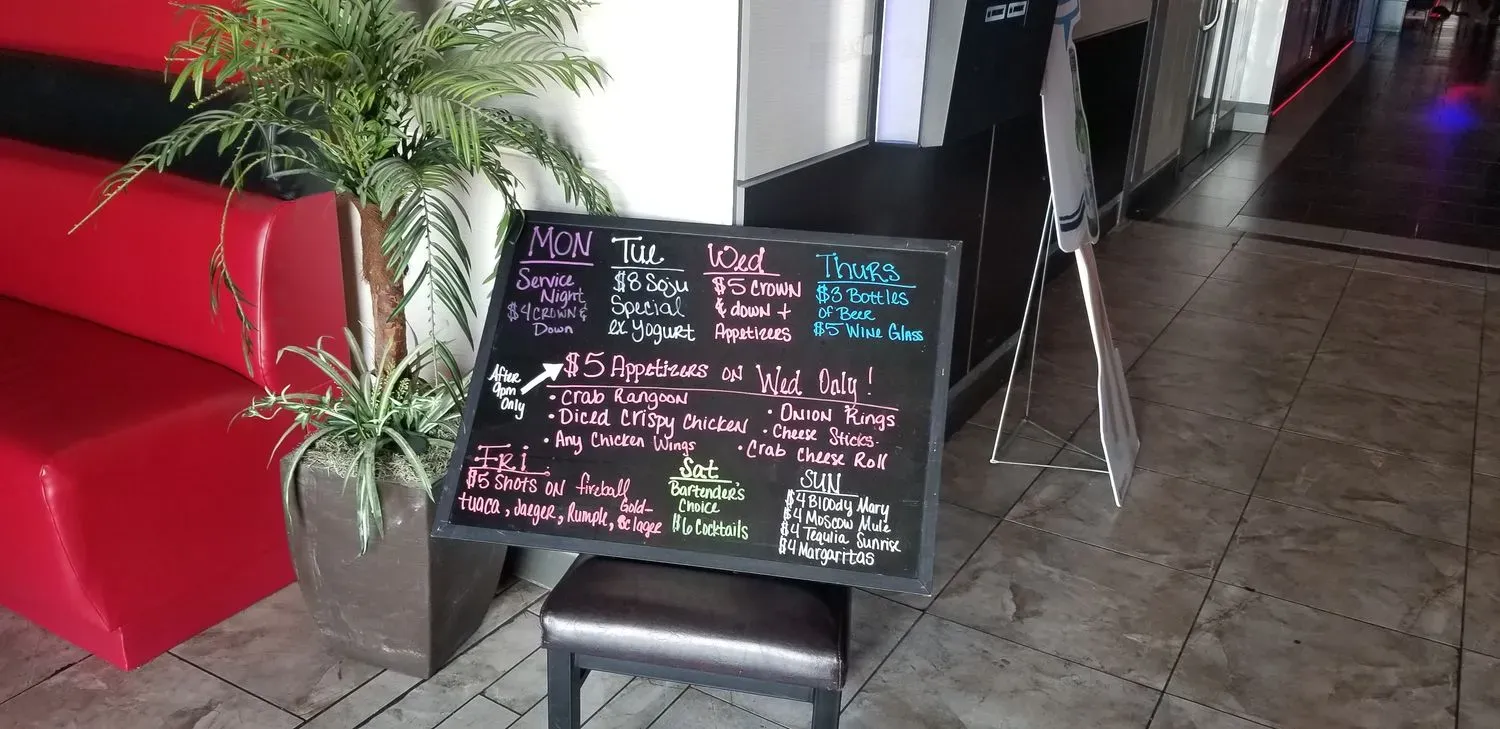 MON
Service
Night
$4 CROWN &
Down
Tue
$8 Soju
Special
ex Yogurt
Wed
$5 CROWN
& down +
Appetizers
Thurs
$3 Bottles
OF Beer
$5 Wine Glass
After
9pm
Only
$5 Appetizers ON Wed Only!
• Crab Rangoon
• Diced Crispy Chicken
• Any Chicken Wings
• ONION Rings
• Cheese Sticks
• Crab Cheese Roll
Fri
$5 Shots ON fireball
tuaca, Jaeger, Rumple, & Gold-
lager
Sat
Bartender's
Choice
$6 Cocktails
SUN
$4 Bloody Mary
$4 Moscow Mule
$4 Tequlia Sunrise
$4 Margaritas